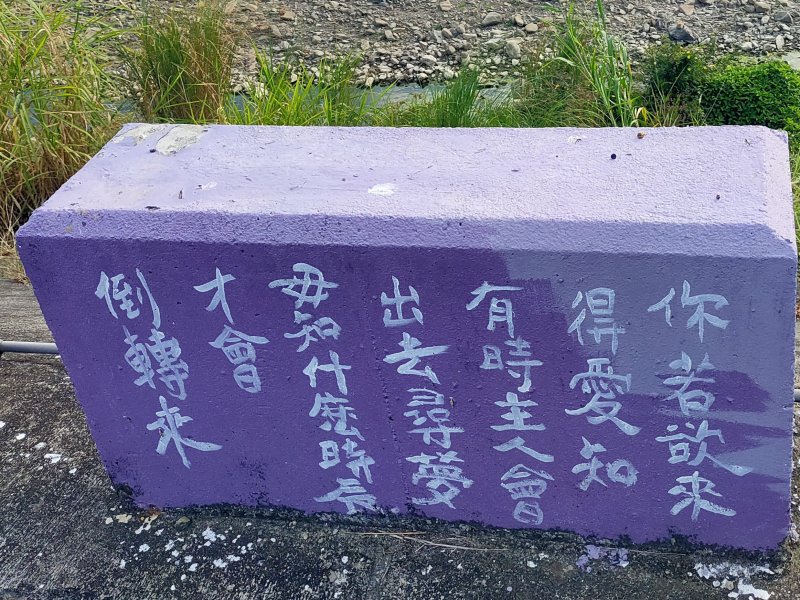 你若欲來
得愛知
有時主人會
出去尋夢
毋知什麼時辰
才會
倒轉來